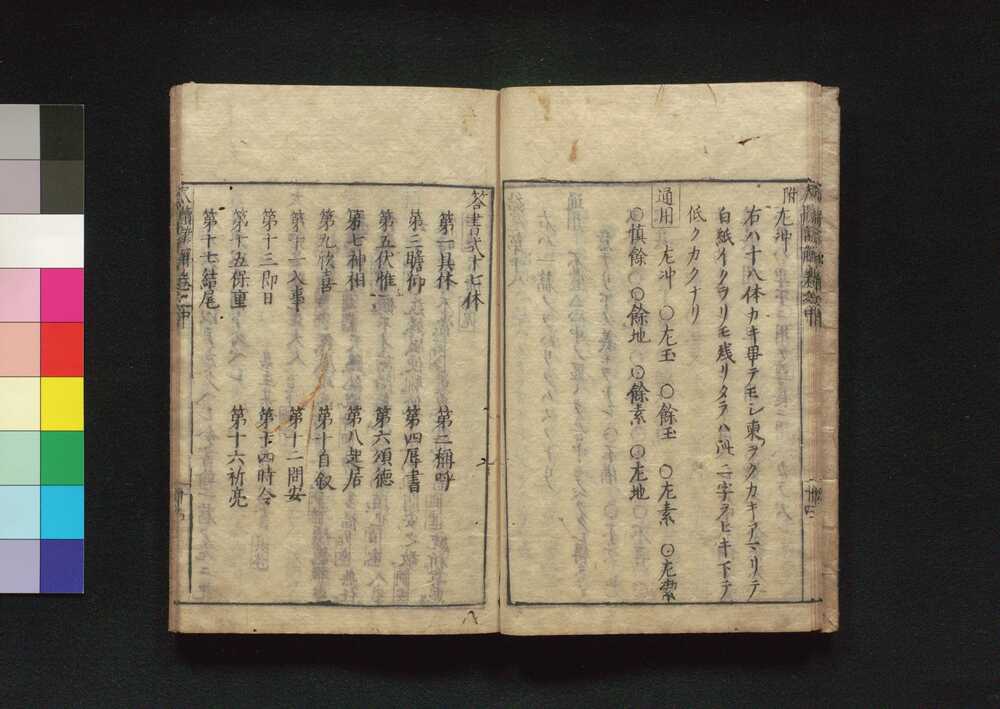 附 左沖
右ハ十八体カキ畢テモシ東ヲクカキアマリテ
白紙イクヲリモ残リタラハ此二字ヲヒキ下テ
低クカクナリ
通用 左沖 〇左玉 〇餘玉 〇左素 〇左
〇慎餘 〇餘地 〇餘素 〇左地
答書式十七体
第一具休 第二称呼
第三瞻仰 第四辱書
第五伏惟 第六頌徳
第七神相 第八起居
第九欣喜 第十自叙
第十一入事 第十二問安
第十三即日 第十四時令
第十五保重 第十六祈亮
第十七結尾